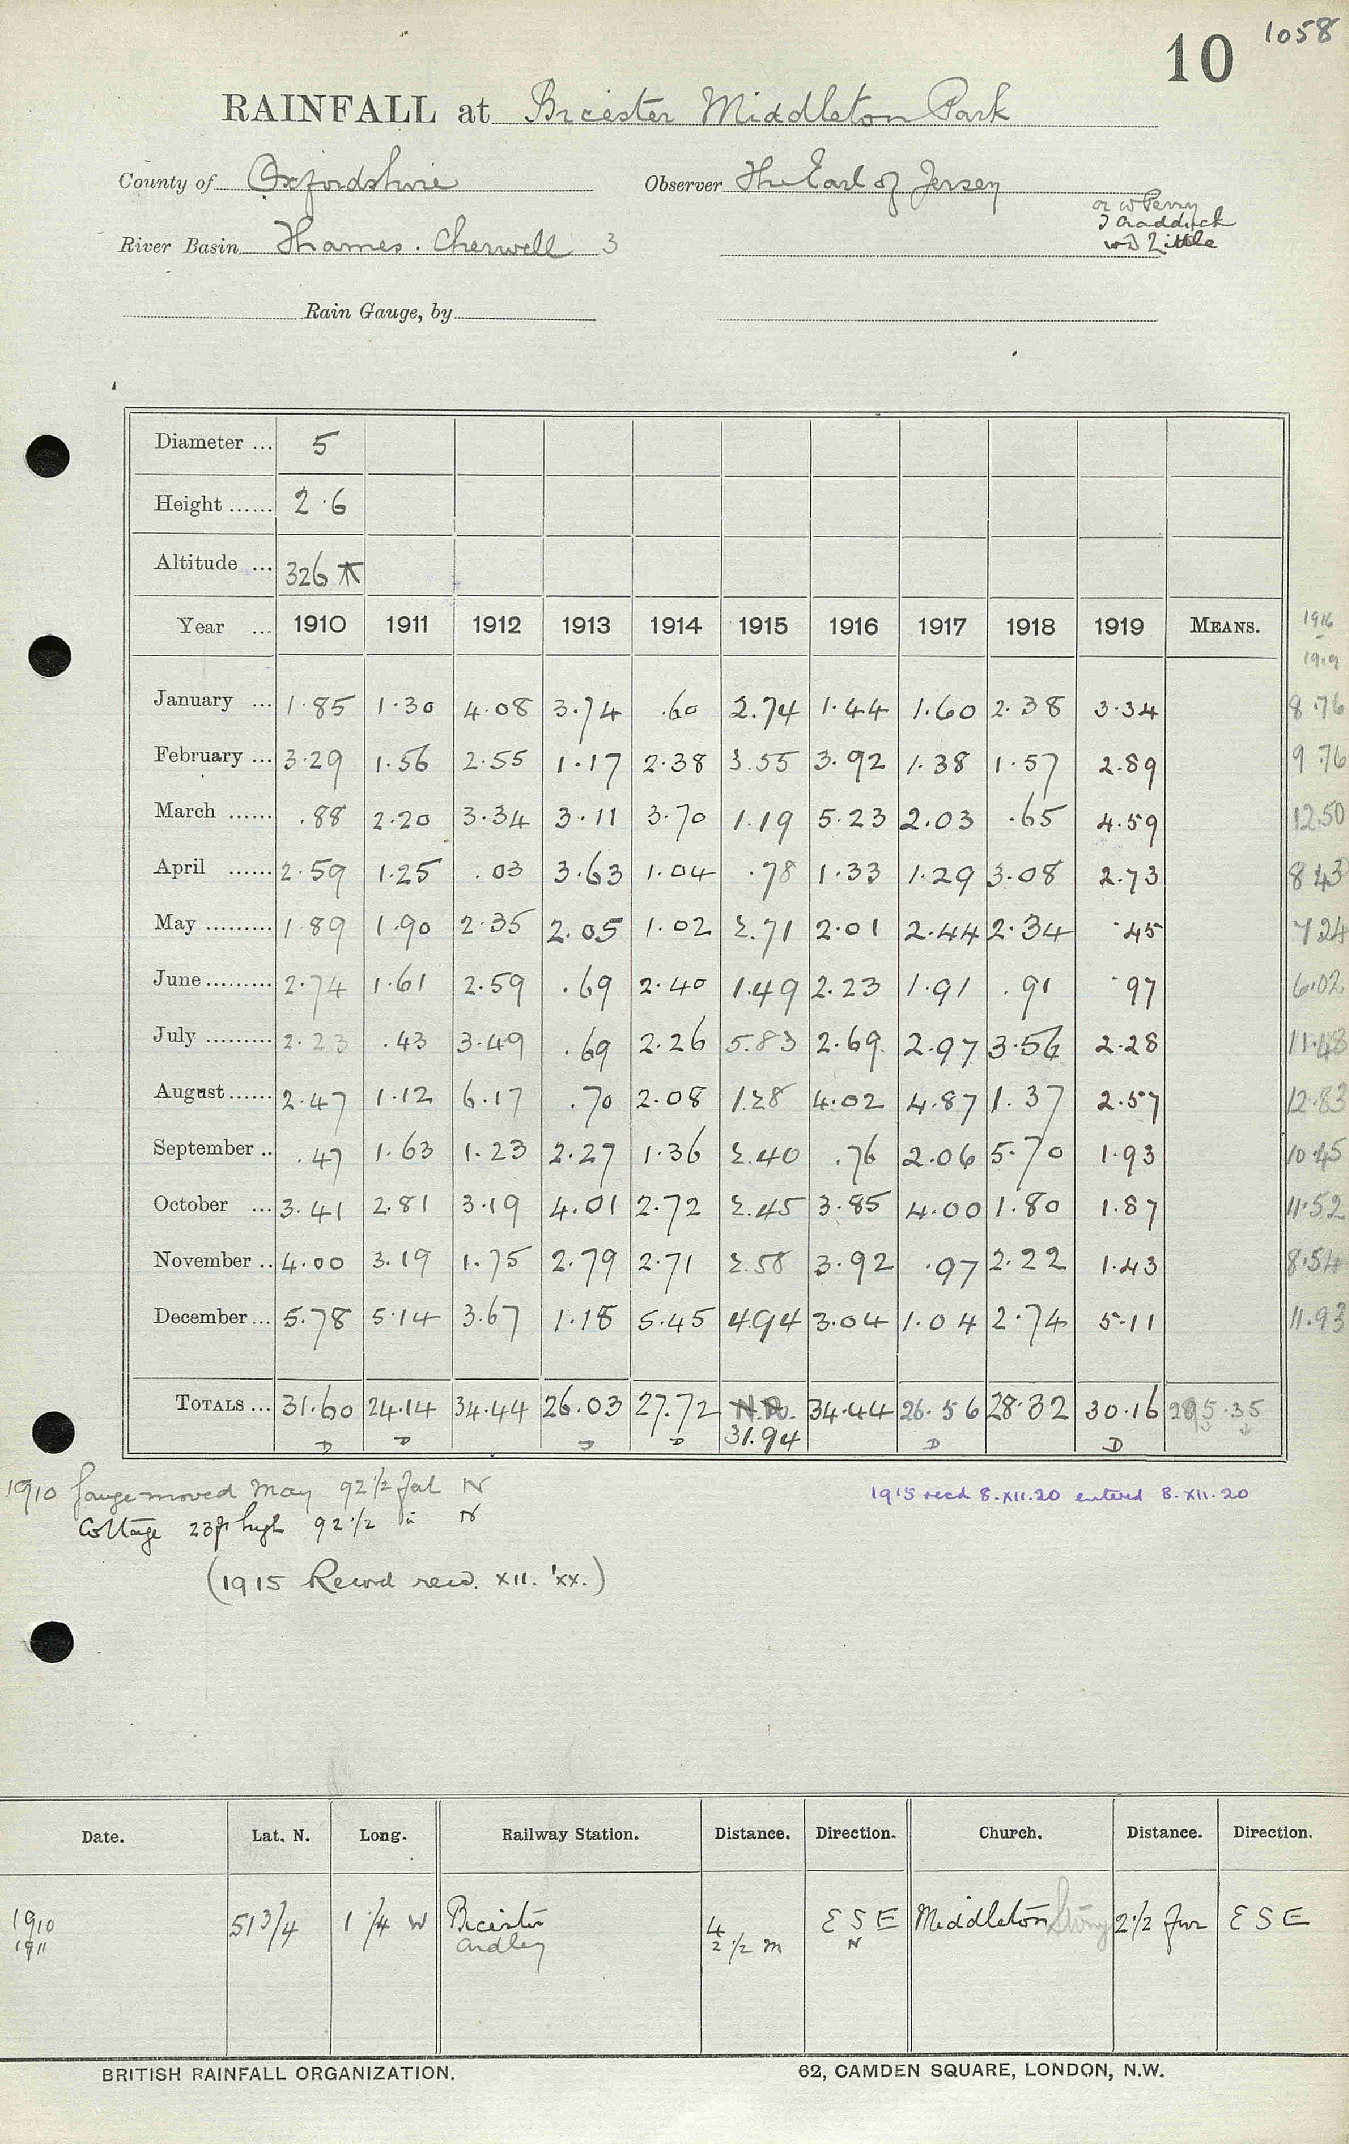 10 1058
RAINFALL at Bicester Middleton Park
County of Oxfordshire Observer The Earl of Jersey
or W Perry
J Craddock
River Basin Thames. Cherwell 3 W D Little
Rain Gauge, by
Diameter ... 5
Height ...... 2.6
Altitude ... 326
Year ... 1910 1911 1912 1913 1914 1915 1916 1917 1918 1919 MEANS. 1916
1919
January ... 1.85 1.30 4.08 3.74 .60 2.74 1.44 1.60 2.38 3.34 8.76
February ... 3.29 1.56 2.55 1.17 2.38 3.55 3.92 1.38 1.57 2.89 9.76
March ...... .88 2.20 3.34 3.11 3.70 1.19 5.23 2.03 .65 4.59 12.50
April ...... 2.59 1.25 .03 3.63 1.04 .78 1.33 1.29 3.08 2.73 8.43
May ......... 1 89 1.90 2.35 2.05 1.02 2.71 2.01 2.44 2.34 .45 7 24
June ......... 2.74 1.61 2.59 .69 2.40 1.49 2.23 1.91 .91 .97 6.02
July ......... 2.23 .43 3.49 .69 2.26 5.83 2.69 2.97 3.56 2.28 11.48
August ...... 2.47 1.12 6.17 .70 2.08 1.28 4.02 4.87 1.37 2.57 12.83
September .. .47 1.63 1.23 2.27 1.36 2.40 .76 2.06 5.70 1.93 10.45
October ... 3.41 2.81 3.19 4.01 2.72 2.45 3.85 4.00 1.80 1.87 11.52
November .. 4.00 3.19 1.75 2.79 2.71 2.58 3.92 .97 2.22 1.43 8.54
December ... 5.78 5.14 3.67 1.18 5.45 4.94 3.04 1.04 2.74 5.11 11.93
TOTALS ... 31.60 24.14 34.44 26.03 27.72 N.R. 34.44 26.56 28.32 30.16 295.35
31.94
D D D D D D
1910 Gauge moved May 92 1/2 N
Cottage 23ft high 92 1/2 " N
1915 recd 8.XII.20 entered 8.XII.20
(1915 Record recd. XII. 'XX.)
Date. Lat. N. Long. Railway Station. Distance. Direction. Church. Distance. Direction.
1910 51 3/4 1 1/4 W Bicester 4 E S E Middleton Stony 2 1/2 fur E S E
1911 Ardley 2 1/2 m N
BRITISH RAINFALL ORGANIZATION. 62, CAMDEN SQUARE, LONDON, N.W.